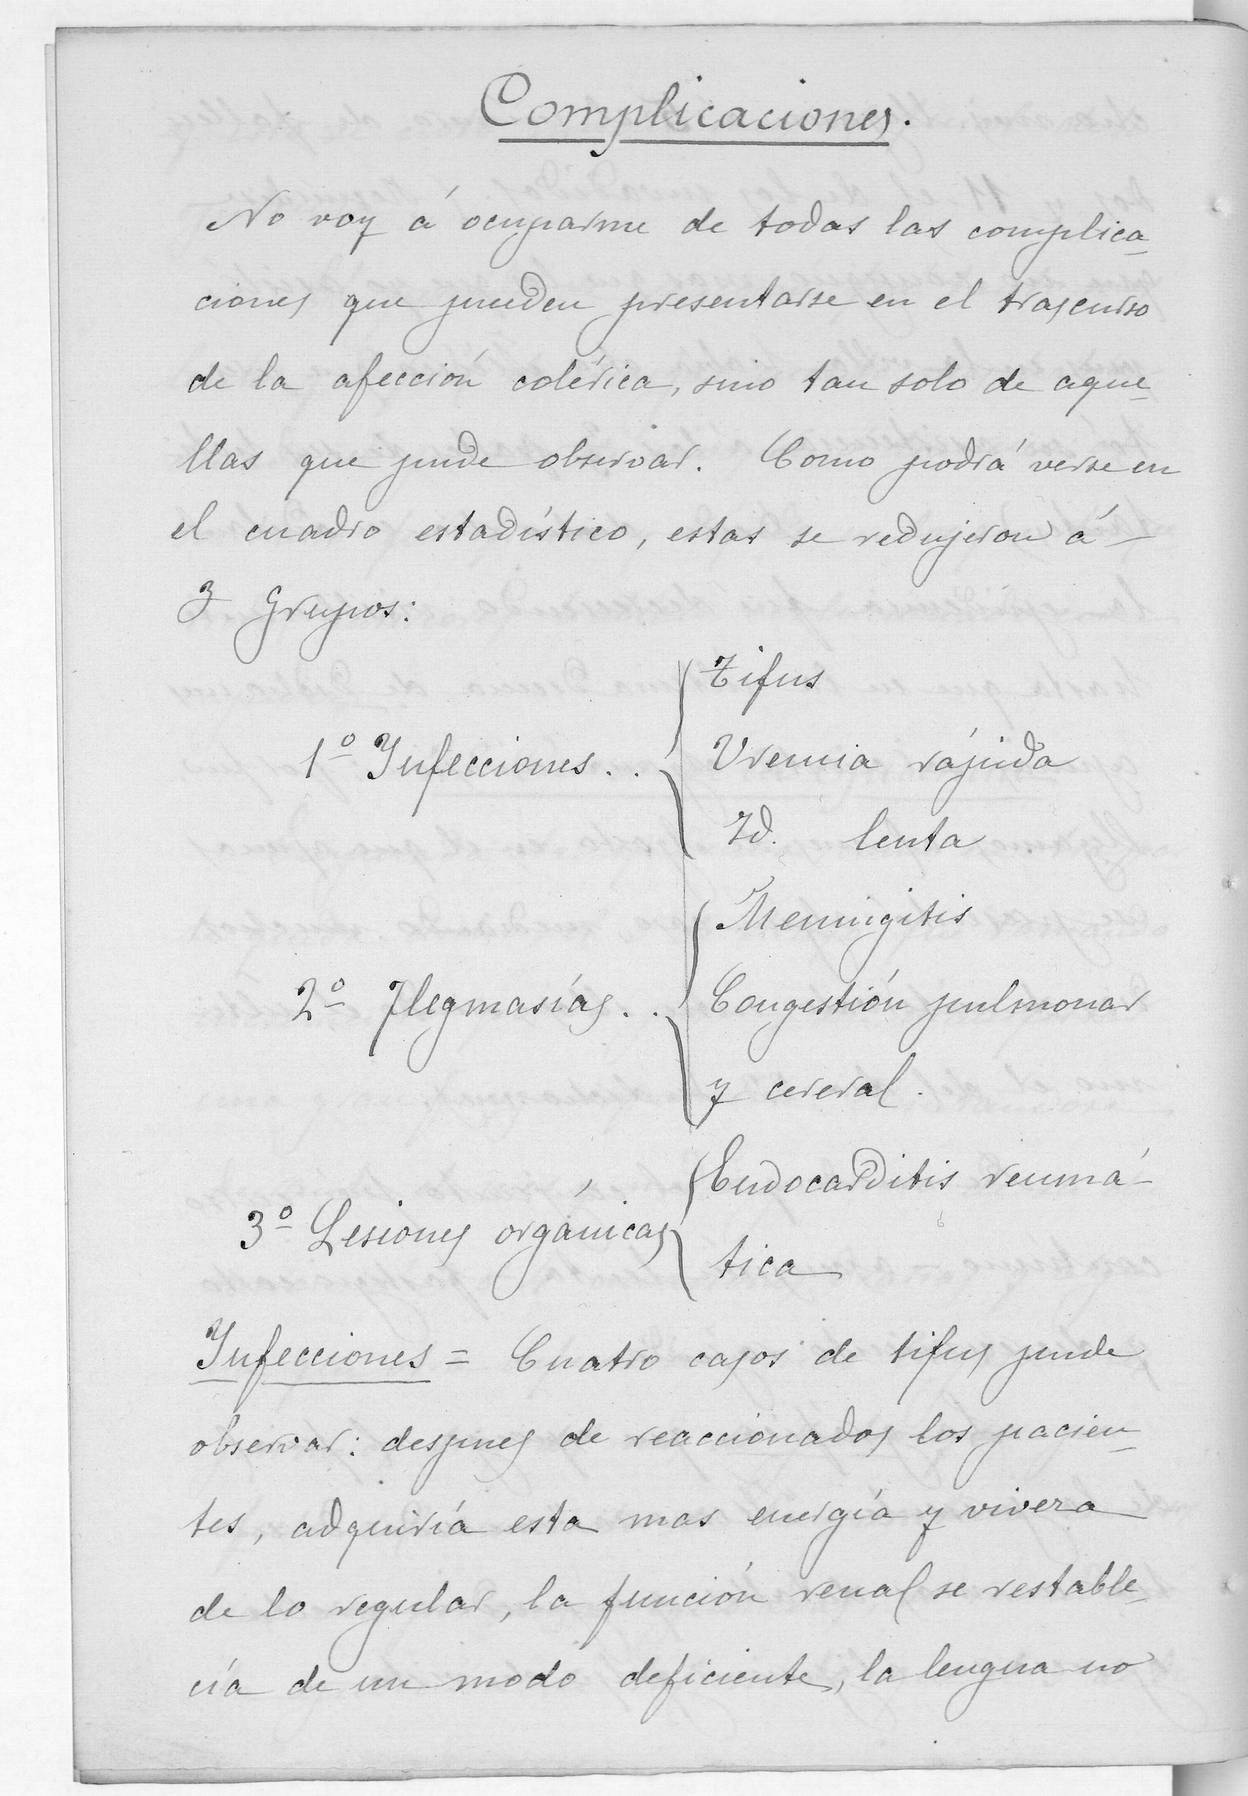 Complicaciones.
No voy á ocuparme de todas las complica-
ciones que pueden presentarse en el trascurso
de la afección colérica, sino tan solo de aque-
llas que pude observar. Como podrá verse en
el cuadro estadístico, estas se redujeron á
3 grupos:
Tifus
1º Infecciones . . Uremia rápida
Id. lenta
Meningitis
2º Flegmasías . . Congestión pulmonar
y cereral.
3º Lesiones orgánicas Endocarditis reumá-
tica
Infecciones = Cuatro casos de tifus pude
observar: despues de reaccionados los pacien-
tes, adquiría esta mas energía y viveza
de lo regular, la función renal se restable-
cía de un modo deficiente, la lengua no